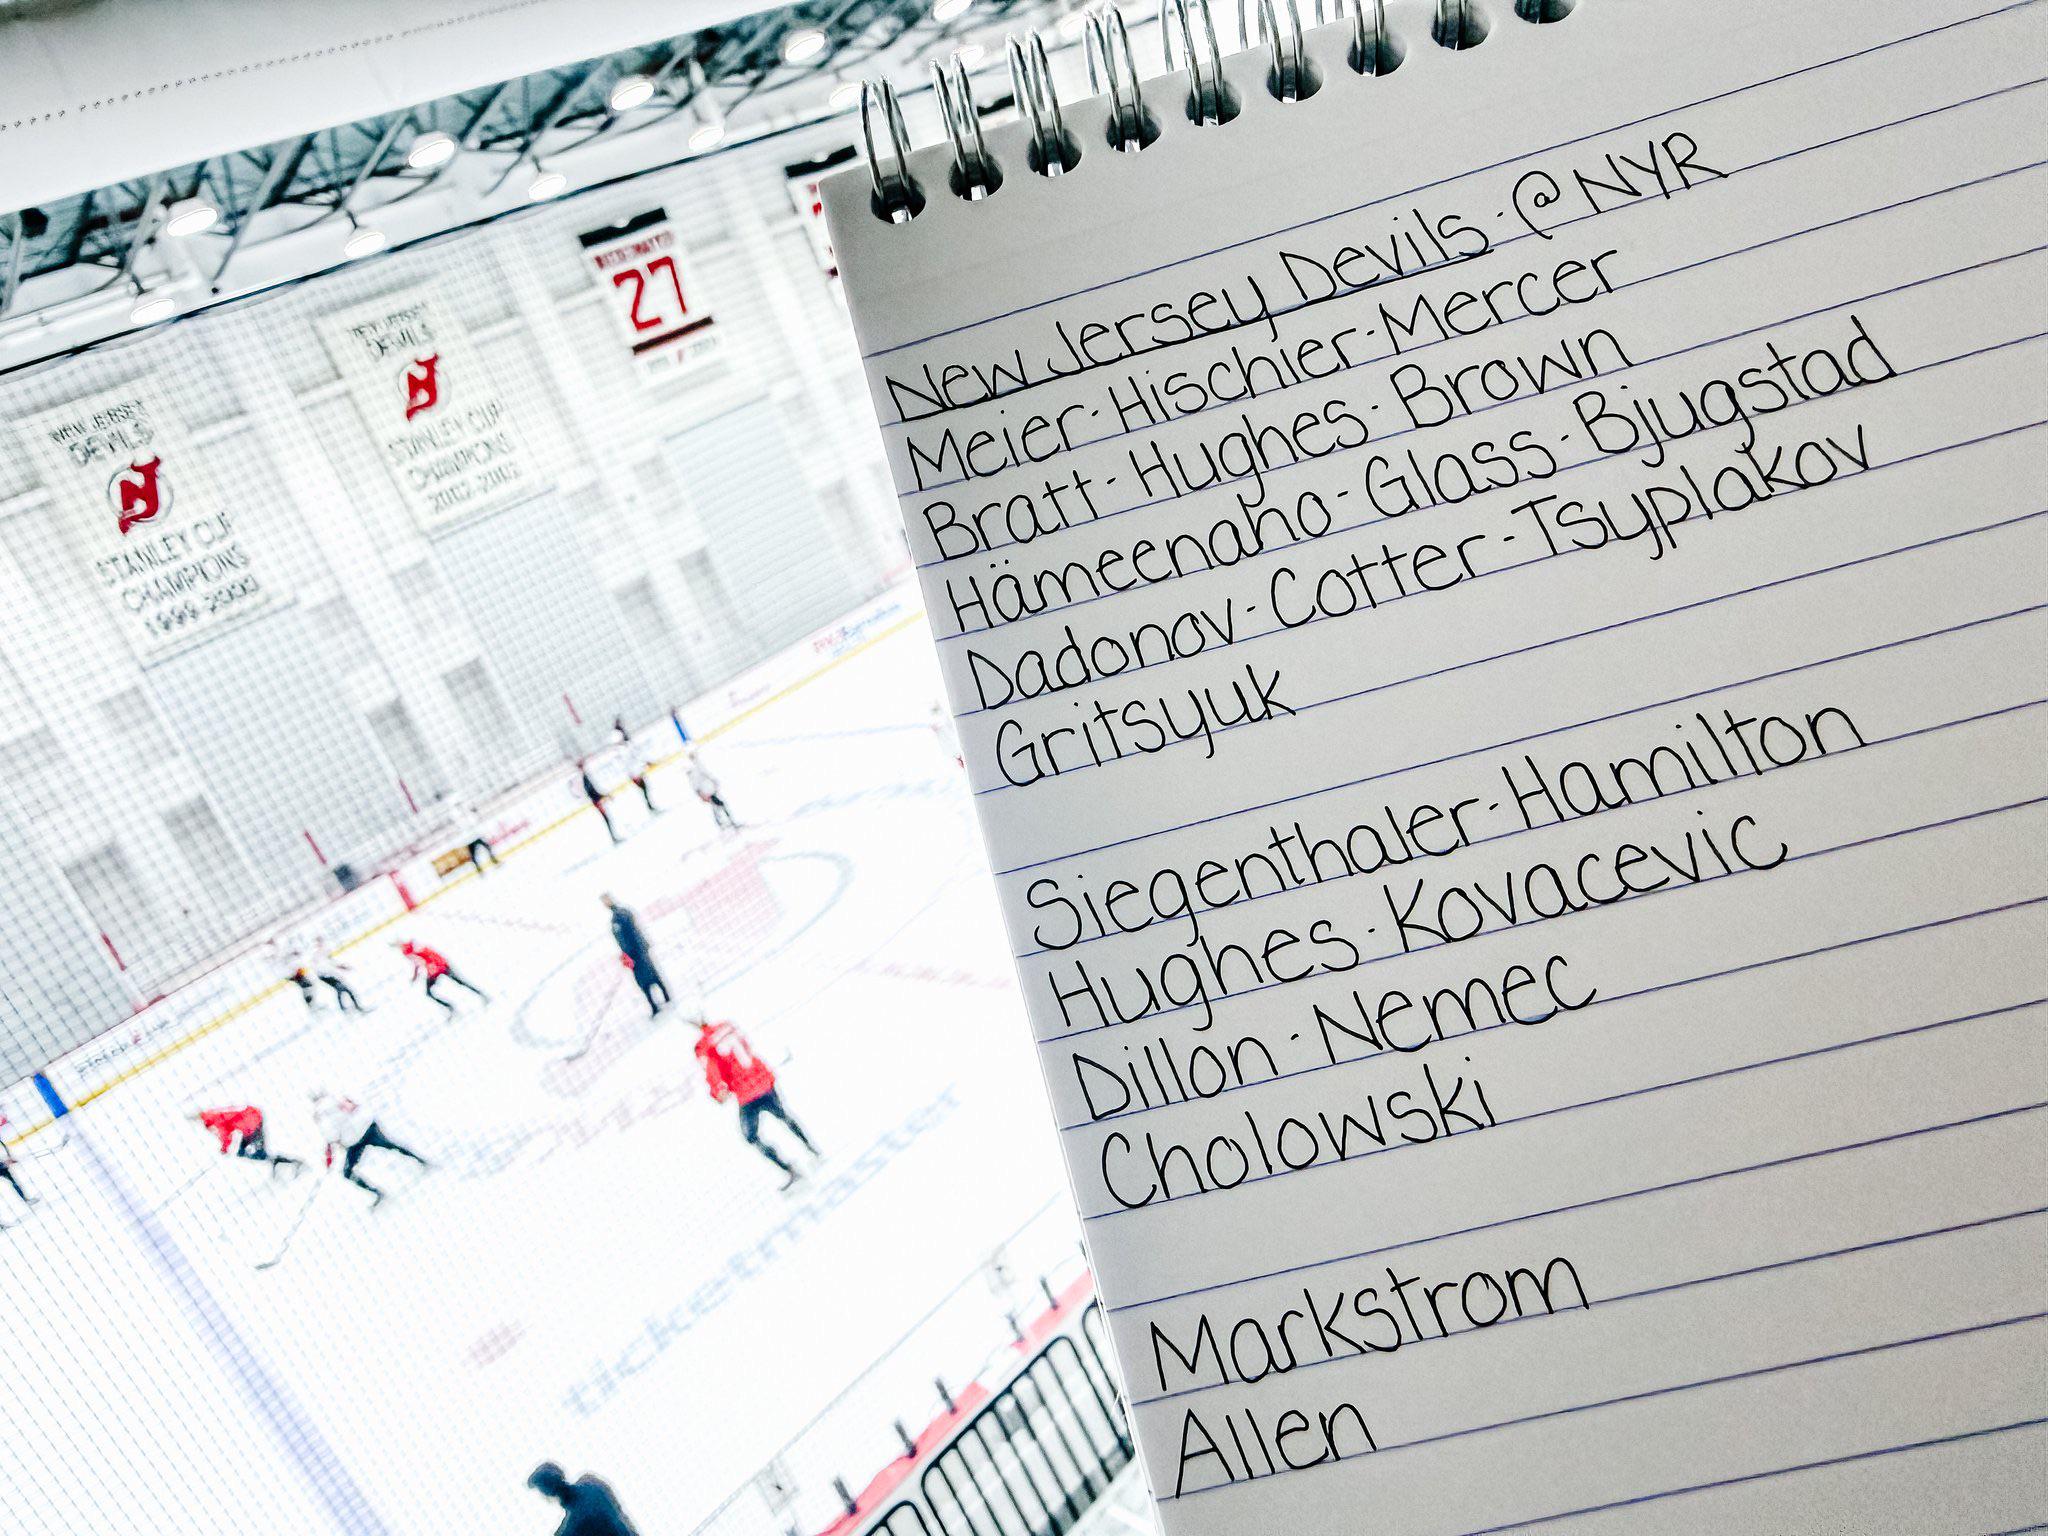 New Jersey Devils · @ NYR
Meier · Hischier · Mercer
Bratt · Hughes · Brown
Hämeenaho · Glass · Bjugstad
Dadonov · Cotter · Tsyplakov
Gritsyuk
Siegenthaler · Hamilton
Hughes · Kovacevic
Dillon · Nemec
Cholowski
Markstrom
Allen
NEW JERSEY
DEVILS
STANLEY CUP
CHAMPIONS
1999-2000
NEW JERSEY
DEVILS
STANLEY CUP
CHAMPIONS
27
ticketmaster